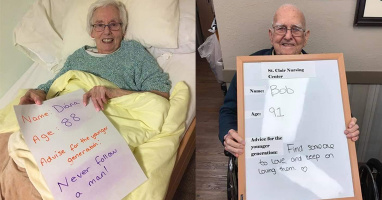 Name Dora
Age 88
Advise for the younger
generation:
Never follow
a man!
St. Clair Nursing
Center
Name:
Bob
Age:
91
Advice for the
younger
generation:
Find someone
to love and keep on
loving them ♡